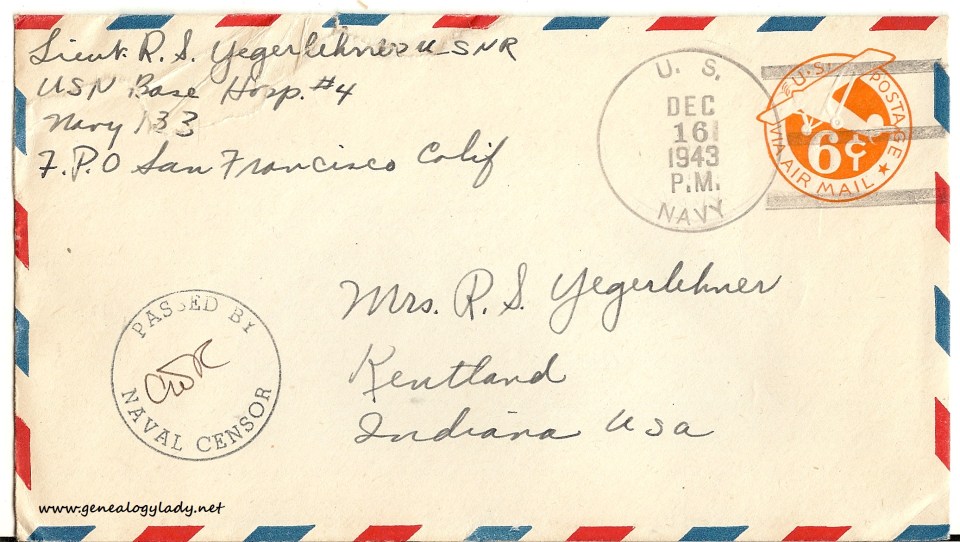 Lieut. R. S. Yegerlehner USNR
USN Base Hosp. #4
Navy 133
F.P.O San Francisco Calif
U. S.
DEC
16
1943
P.M.
NAVY
U.S. POSTAGE
6¢
VIA AIR MAIL
Mrs. R. S. Yegerlehner
Kentland
Indiana USA
PASSED BY
NAVAL CENSOR
www.genealogylady.net